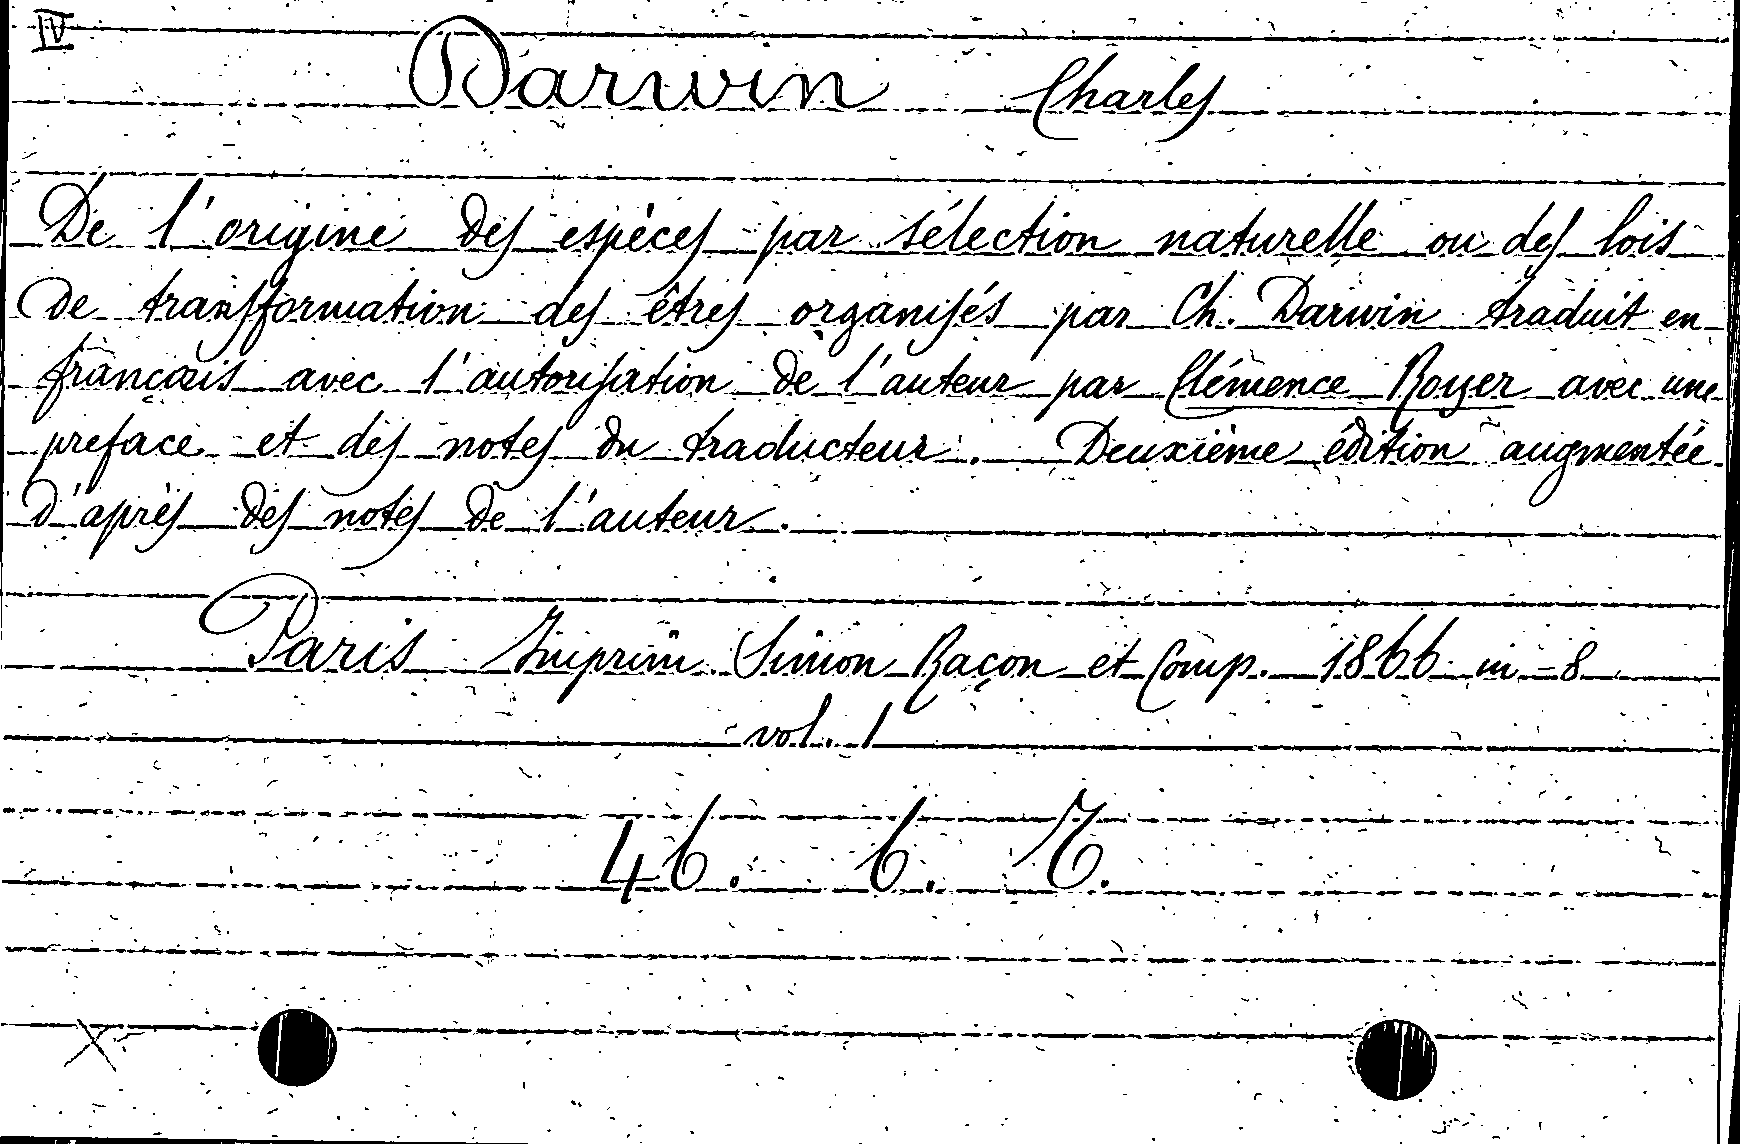 IV
Darwin Charles
De l'origine des espèces par sélection naturelle ou des lois
de transformation des êtres organisés par Ch. Darwin traduit en
français avec l'autorisation de l'auteur par Clémence Royer avec une
preface et des notes du traducteur. Deuxième édition augmentée
d'après des notes de l'auteur.
Paris Imprim. Simon Raçon et Comp. 1866 in-8
vol. 1
46. 6.